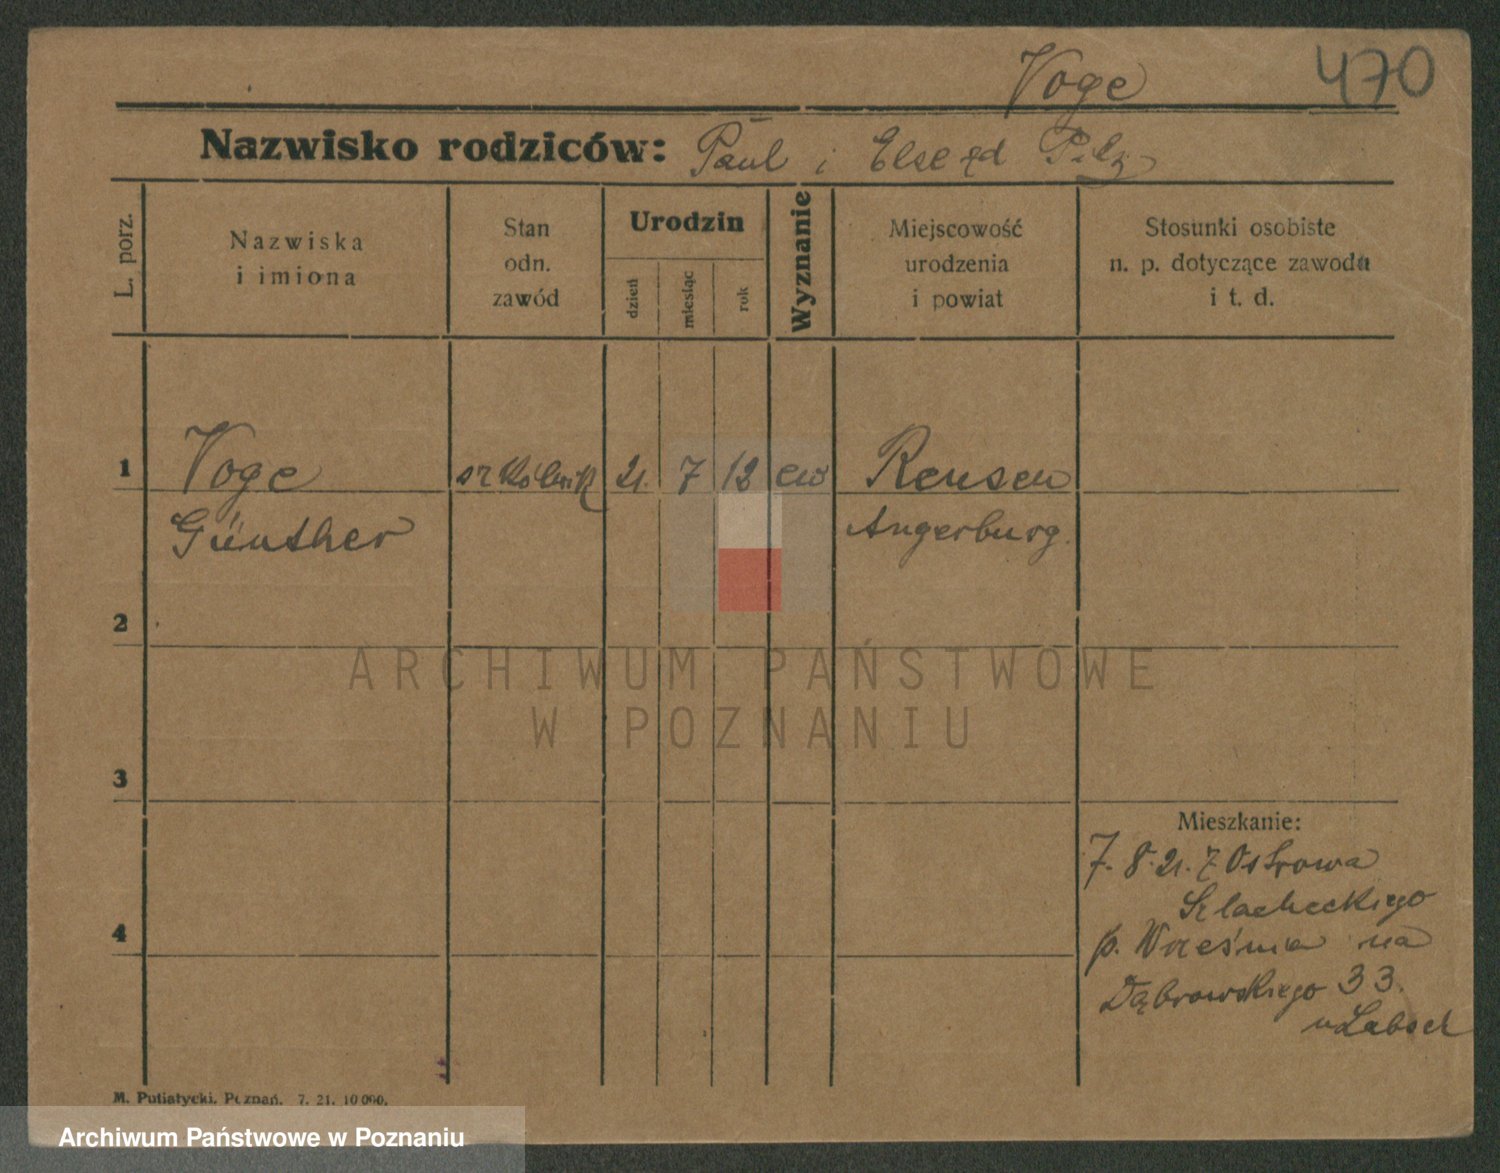 Voge 470
Nazwisko rodziców: Paul i Else zd Pilz
L. porz.
Nazwiska
i imiona
Stan
odn.
zawód
Urodzin
dzień
miesiąc
rok
Wyznanie
Miejscowość
urodzenia
i powiat
Stosunki osobiste
n. p. dotyczące zawodu
i t. d.
1 Voge szkólnik 21. 7 12 ew Reusen
Günther Angerburg.
2
ARCHIWUM PAŃSTWOWE
W POZNANIU
3
Mieszkanie:
7. 8. 21. z Ostrowa
Szlacheckiego
4
p. Września na
Dąbrowskiego 33.
u Labsch
M. Putiatycki, Poznań. 7. 21. 10000.
Archiwum Państwowe w Poznaniu